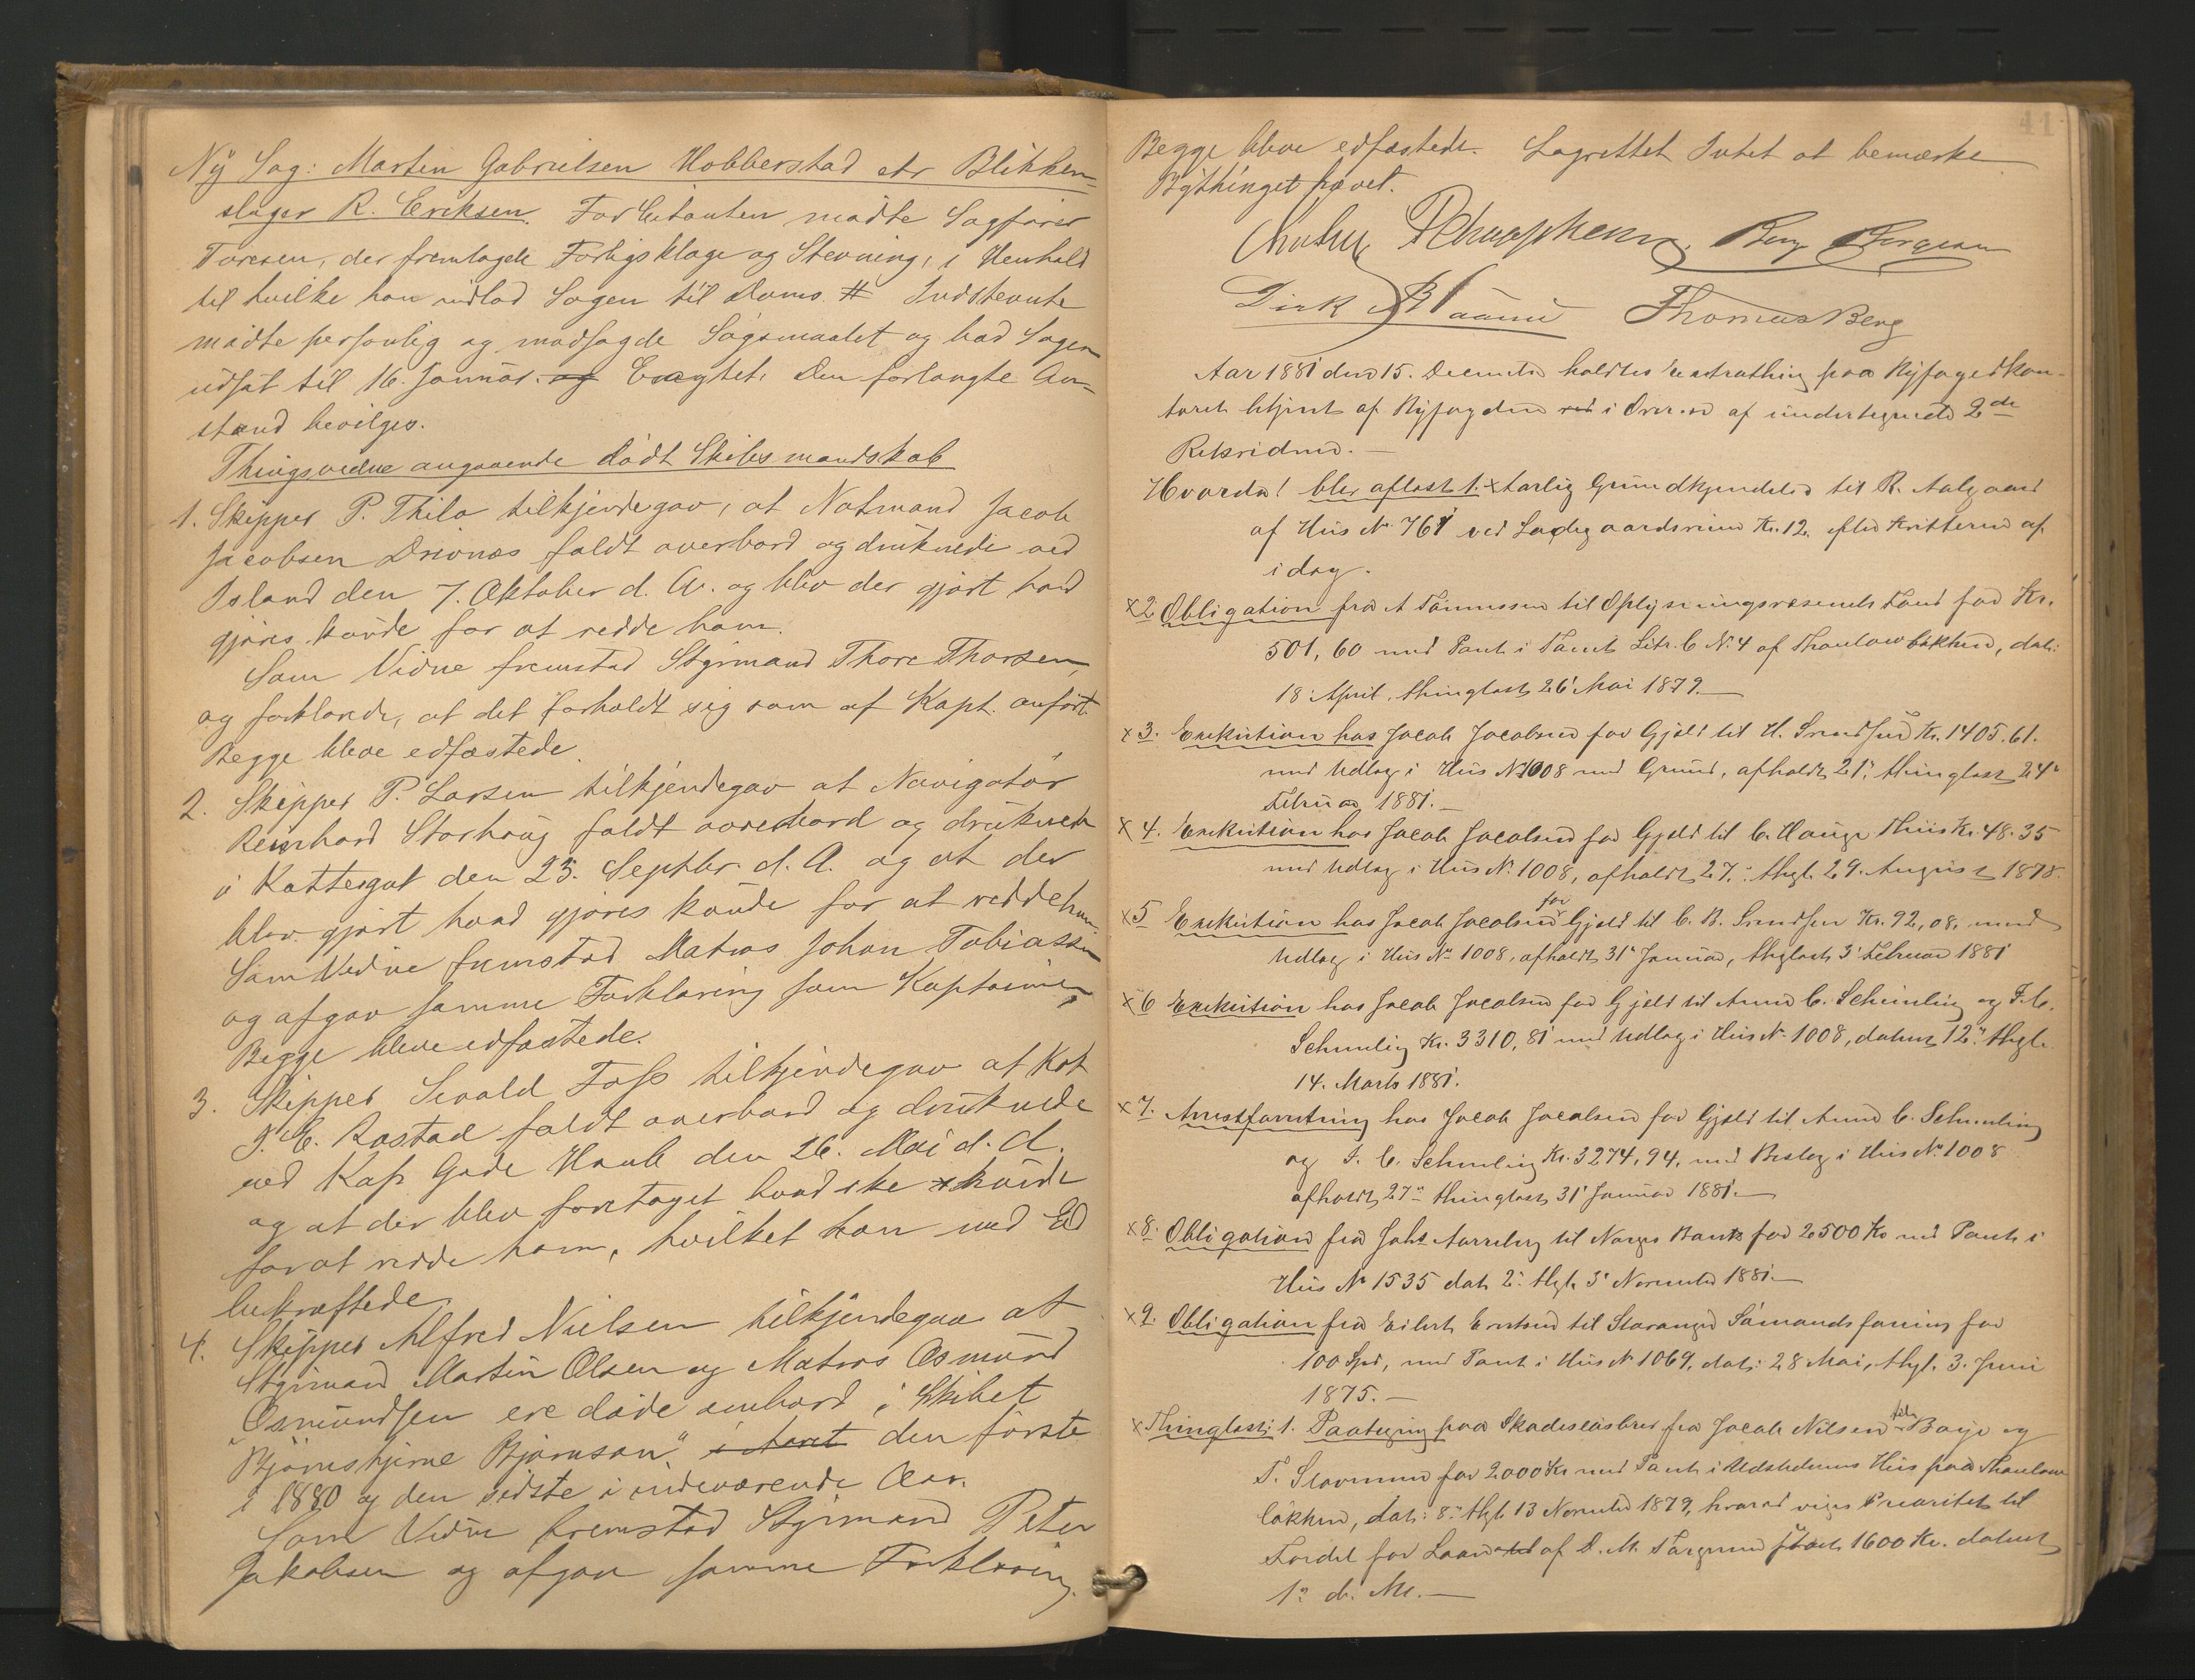 Ny Sag: Martin Gabrielsen Hobberstad ctr Blikken-
slager R. Eriksen. For Citanten mødte Sagfører
Toresen, der fremlagde Forligsklage og Stevning, i Henhold
til hvilke han indlod Sagen til Doms. # Indstevnte
mødte personlig og modsagde Søgsmaalet og bad Sagen
udsat til 16. Januar. og Eragtet: Den forlangte An-
stand bevilges.
Thingsvidne angaaende dødt Skibsmandskab
1. Skipper P. Thilo tilkjendegav, at Notmand Jacob
Jacobsen faldt overbord og druknede ved
Island den 7. Oktober d. A. og blev der gjort hvad
gjøres kunde for at redde ham.
Som Vidne fremstod Styrmand Thore Thorsen,
og forklarede, at det forholdt sig som af Kapt. anført.
Begge bleve edfæstede.
2. Skipper P. Larsen tilkjendegav at Navigatør
Reinhard Storhoug faldt overbord og druknede
i Kattegat den 23. Septbr. d. A. og at der
blev gjort hvad gjøres kunde for at redde ham.
Som Vidne fremstod Matros Johan Tobiassen
og afgav samme Forklaring som Kaptainen,
Begge bleve edfæstede.
3. Skipper Sevald Foss tilkjendegav at Kok
J. C. Rostad faldt overbord og druknede
ved Kap Gode Haab den 26. Mai d. A.
og at der blev foretaget hvad ske kunde
for at redde ham, hvilket han med Ed
bekræftede.
4. Skipper Alfred Nielsen tilkjendegav at
Styrmand Martin Olsen og Matros Osmund
Osmundsen ere døde ombord i Skibet
"Bjørnstjerne Bjørnson", i Aaret den første
i 1880 og den sidste i indeværende Aar.
Som Vidne fremstod Styrmand Peter
Jakobsen og afgav samme Forklaring.
41
Begge bleve edfæstede. Lagrettet Intet at bemærke
Bythinget hævet.
Berg
Dirk Thomas Berg
Aar 1881 den 15. December holdtes Extrathing paa Byfogedkon-
toret betjent af Byfogden ved i Overvær af undertegnede 2de
Retsvidner. —
Hvorda! blev aflæst 1. x tarlig Grundkjendelse til R. Aalgaard
af Hus No 761 ved Ladegaardsveien Kr. 12, efter Kritteren af
idag.
x2 Obligation fra A Tønnessen til Oplysningsvæsenets Fond for Kr.
501,60 med Pant i Tomt Litr. C No 4 af Thaulowløkken, dat:
18' April, thinglæst 26' Mai 1879. —
x3. Exekution hos Jacob Jacobsen for Gjæld til H. Svendsen Kr. 1405.61.
med Udlæg i Hus No 1008 med Grund, afholdt 21', thinglæst 24'
Februar 1881. —
x4. Exekution hos Jacob Jacobsen for Gjæld til C. Hauge Thiis Kr. 48.35
med Udlæg i Hus No 1008, afholdt 27.: thgl. 29. August 1878.
x5 Exekution hos Jacob Jacobsen for Gjæld til C. B. Svendsen Kr. 92,08, med
Udlæg i Hus No 1008, afholdt 31' Januar, thglæst 3' Februar 1881
x6 Exekution hos Jacob Jacobsen for Gjæld til Anna C. Schmeling og F. C.
Schmeling Kr. 3310,81 med Udlæg i Hus No 1008, dateret 12' thgl.
14. Marts 1881.
x7. Arrestforretning hos Jacob Jacobsen for Gjæld til Anna C. Schmeling
og F. C. Schmeling Kr. 3274,94, med Beslag i Hus No 1008
afholdt 27' thinglæst 31' Januar 1881. —
x8. Obligation fra Johs Aarreberg til Norges Bank for 2500 Kr med Pant i
Hus No 1535 dat. 2' thgl. 3' November 1881. —
x9. Obligation fra Eilert Evertsen til Stavanger Sømandsforening for
100 Spd, med Pant i Hus No 1069, dat: 28 Mai, thgl. 3. Juni
1875. —
x Thinglæst: 1. Paategning paa Skadesløsbrev fra Jacob Nilsen til Boye og
T. Stormund for 2000 Kr med Pant i Udstederens Hus paa Thaulow
løkken, dat: 8' thgl. 13 November 1879, hvorved viges Prioritet til
Fordel for Laan af D. M. stort 1600 Kr. dateret
1' d. M. —